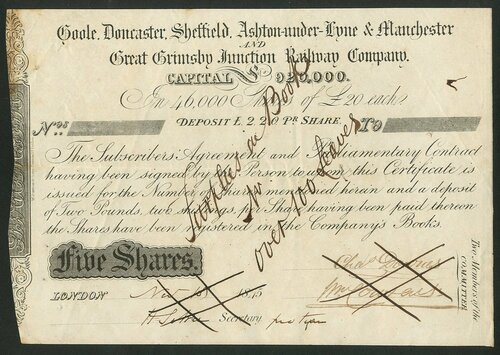 Goole, Doncaster, Sheffield, Ashton-under-Lyne & Manchester
AND
Great Grimsby Junction Railway Company.
CAPITAL £920,000.
In 46,000 of £20 each
DEPOSIT £2.2.0 PR SHARE.
Nos. To
The Subscribers' Agreement and Parliamentary Contract
having been signed by the Person to whom this Certificate is
issued for the Number of Shares mentioned herein and a deposit
of Two Pounds, two shillings, per Share having been paid thereon
the Shares have been registered in the Company's Books.
Five Shares.
LONDON 1845
Secretary pro tem
Two Members of the
COMMITTEE
Books
for
over 100 Leaves